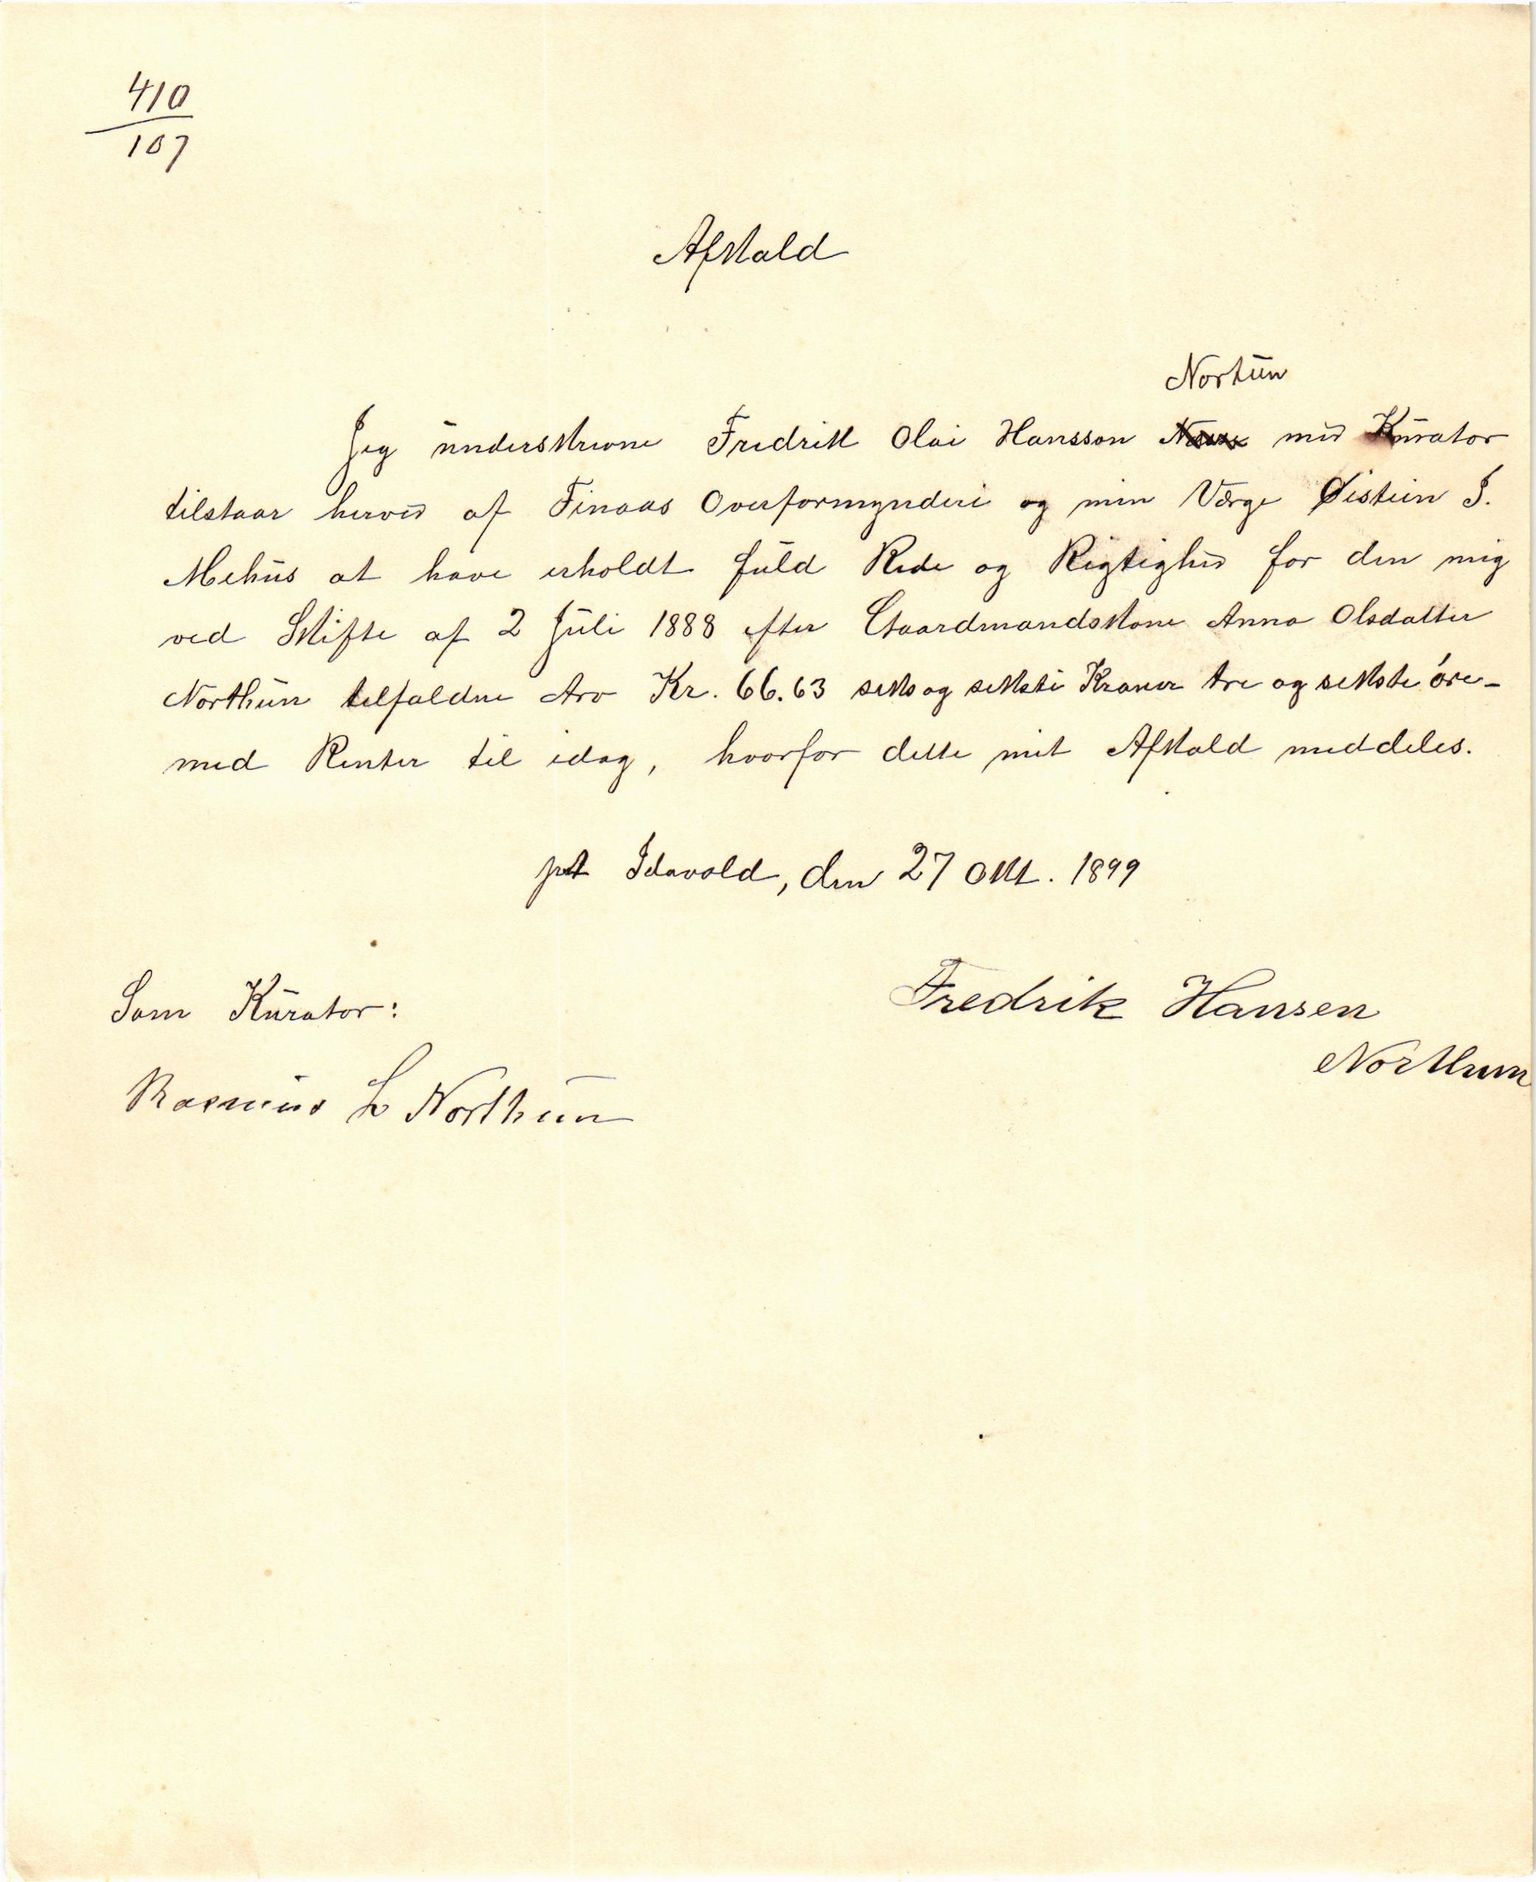 410
107
Afkald
Nortun
Jeg underskrevne Fredrik Olai Hansson med Kurator
tilstaar herved af Finaas Overformynderi og min Værge Øistein J.
Mehus at have erholdt fuld Rede og Rigtighed for den mig
ved Skifte af 2 Juli 1888 efter Gaardmandskone Anna Olsdatter
Northun tilfaldne Arv Kr. 66.63 seks og seksti Kroner tre og seksti øre -
med Renter til idag, hvorfor dette mit Afkald meddeles.
pt Idavold, den 27 Okt. 1899
Som Kurator:
Fredrik Hansen
Northun
Rasmus L Northun